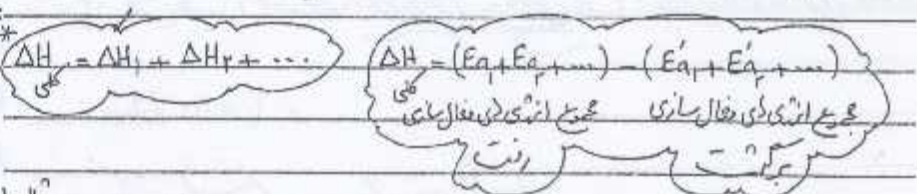 * ΔH کلی = ΔH₁ + ΔH₂ + ...
ΔH کلی = (Ea₁ + Ea₂ + ...) − (E'a₁ + E'a₂ + ...)
مجموع انرژی های فعال سازی رفت
مجموع انرژی های فعال سازی برگشت